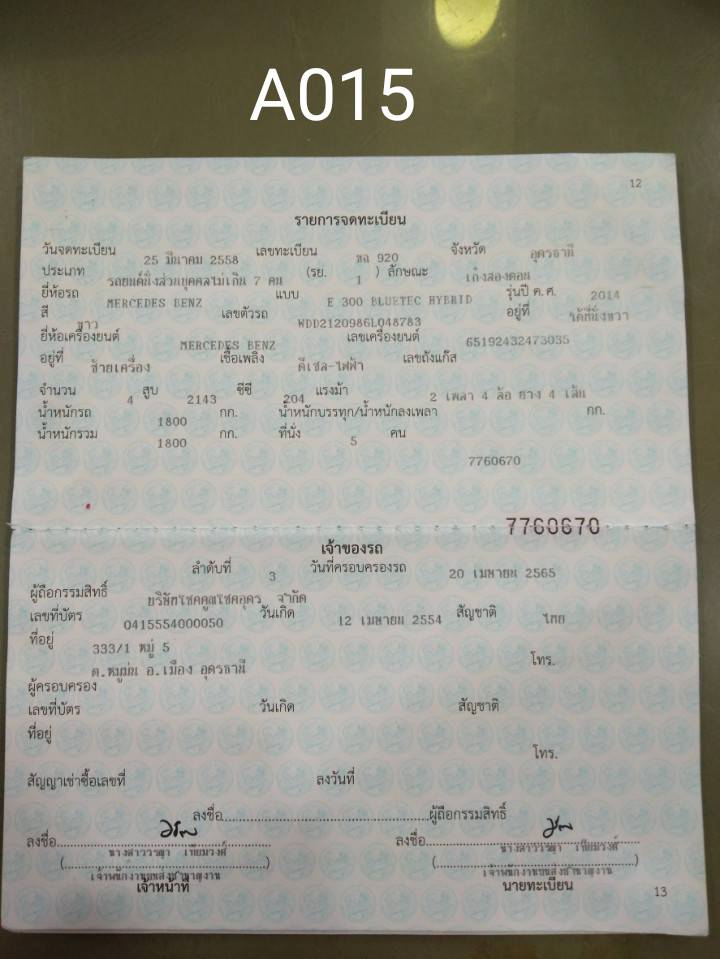 A015
12
รายการจดทะเบียน
วันจดทะเบียน 25 มีนาคม 2558 เลขทะเบียน ขฉ 920 จังหวัด อุดรธานี
ประเภท รถยนต์นั่งส่วนบุคคลไม่เกิน 7 คน (รย. 1 ) ลักษณะ เก๋งสองตอน
ยี่ห้อรถ MERCEDES BENZ แบบ E 300 BLUETEC HYBRID รุ่นปี ค.ศ. 2014
สี ขาว เลขตัวรถ WDD2120986L048783 อยู่ที่ ใต้ที่นั่งขวา
ยี่ห้อเครื่องยนต์ MERCEDES BENZ เลขเครื่องยนต์ 65192432473035
อยู่ที่ ซ้ายเครื่อง เชื้อเพลิง ดีเซล-ไฟฟ้า เลขถังแก๊ส
จำนวน 4 สูบ 2143 ซีซี 204 แรงม้า 2 เพลา 4 ล้อ ยาง 4 เส้น
น้ำหนักรถ 1800 กก. น้ำหนักบรรทุก/น้ำหนักลงเพลา กก.
น้ำหนักรวม 1800 กก. ที่นั่ง 5 คน
7760670
7760670
เจ้าของรถ
ลำดับที่ 3 วันที่ครอบครองรถ 20 เมษายน 2565
ผู้ถือกรรมสิทธิ์ บริษัทโชคคูณโชคอุดร จำกัด
เลขที่บัตร 0415554000050 วันเกิด 12 เมษายน 2554 สัญชาติ ไทย
ที่อยู่ 333/1 หมู่ 5
ต.หมูม่น อ.เมือง อุดรธานี โทร.
ผู้ครอบครอง
เลขที่บัตร วันเกิด สัญชาติ
ที่อยู่
โทร.
สัญญาเช่าซื้อเลขที่ ลงวันที่
ลงชื่อ ผู้ถือกรรมสิทธิ์
ลงชื่อ ลงชื่อ
(นางสาววรรษา เทียมวงศ์) (นางสาววรรษา เทียมวงศ์)
เจ้าพนักงานขนส่งชำนาญงาน เจ้าพนักงานขนส่งชำนาญงาน
เจ้าหน้าที่ นายทะเบียน
13